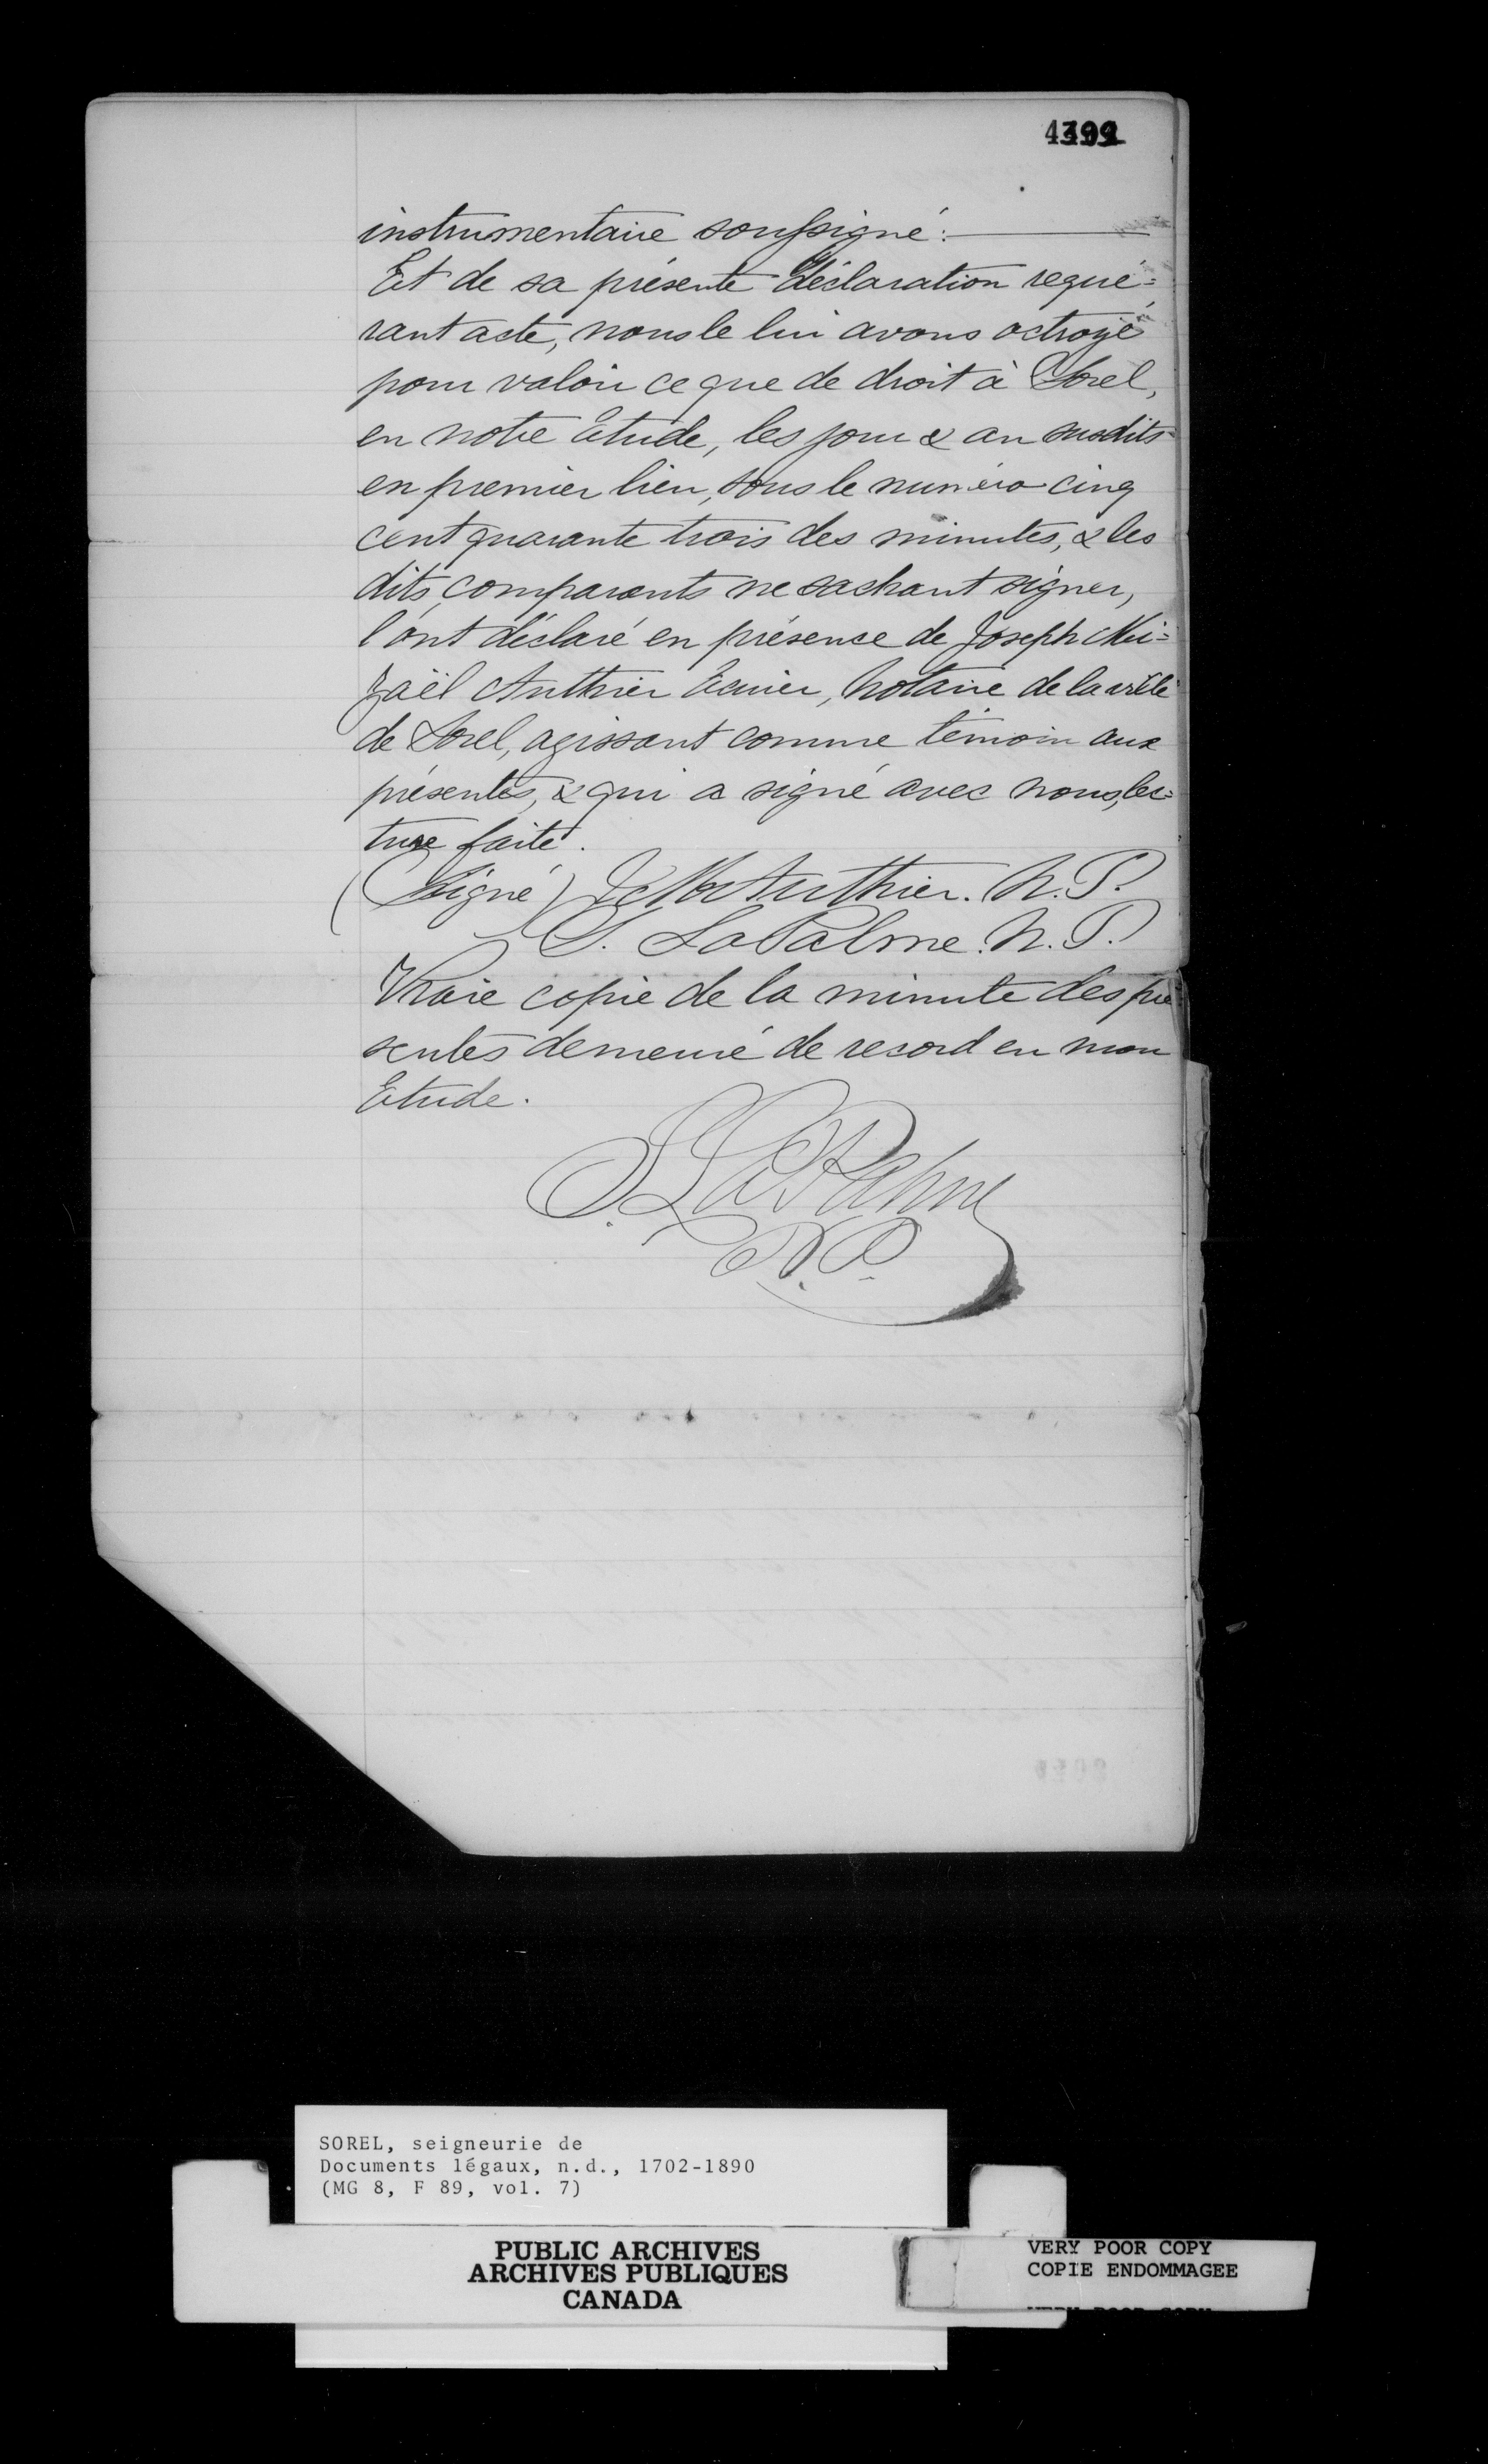 instrumentaire soussigné:
Et de sa présente déclaration requé=
rant acte, nous le lui avons octroyé
pour valoir ce que de droit à Sorel,
en notre Etude, les jour & an susdits
en premier lieu, sous le numéro cinq
cent quarante trois des minutes, & les
dits comparants ne sachant signer,
l'ont déclaré en présence de Joseph Mi=
zaël Authier Ecuier, Notaire de la ville
de Sorel, agissant comme témoin aux
présentes, & qui a signé avec nous, lec=
ture faite.
(Signé) Authier. N. P.
S. LaPalme. N. P.
Vraie copie de la minute des pré
sentes demeuré de record en mon
Etude.
S. LaPalme
N.P.
SOREL, seigneurie de
Documents légaux, n.d., 1702-1890
(MG 8, F 89, vol. 7)
PUBLIC ARCHIVES
ARCHIVES PUBLIQUES
CANADA
VERY POOR COPY
COPIE ENDOMMAGEE
VERY POOR COPY